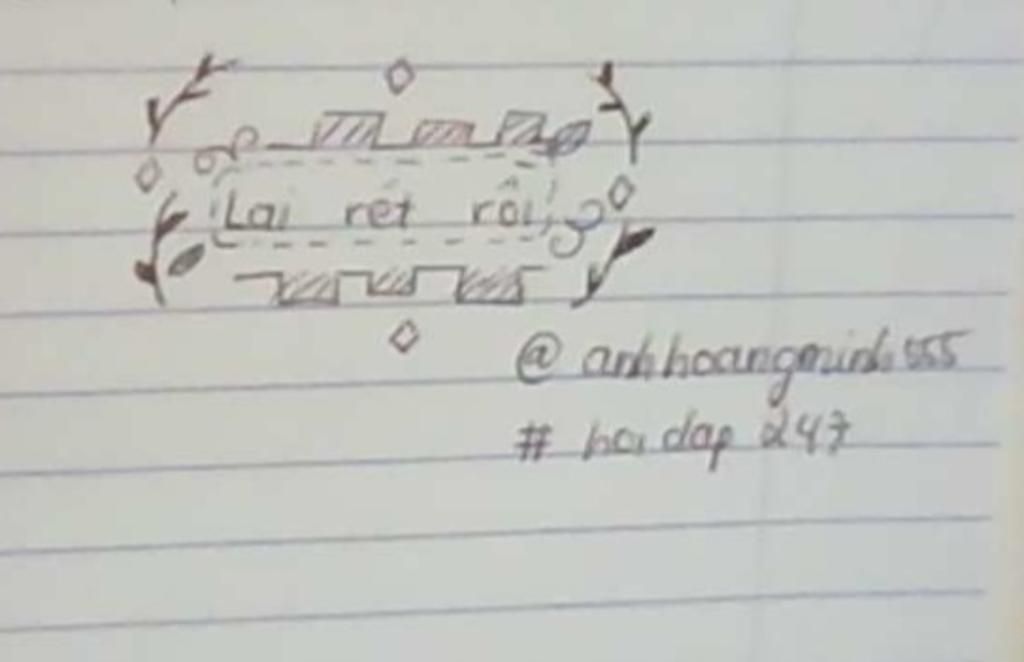 Lại rét rồi
@ anhhoangminh555
# hoidap 247